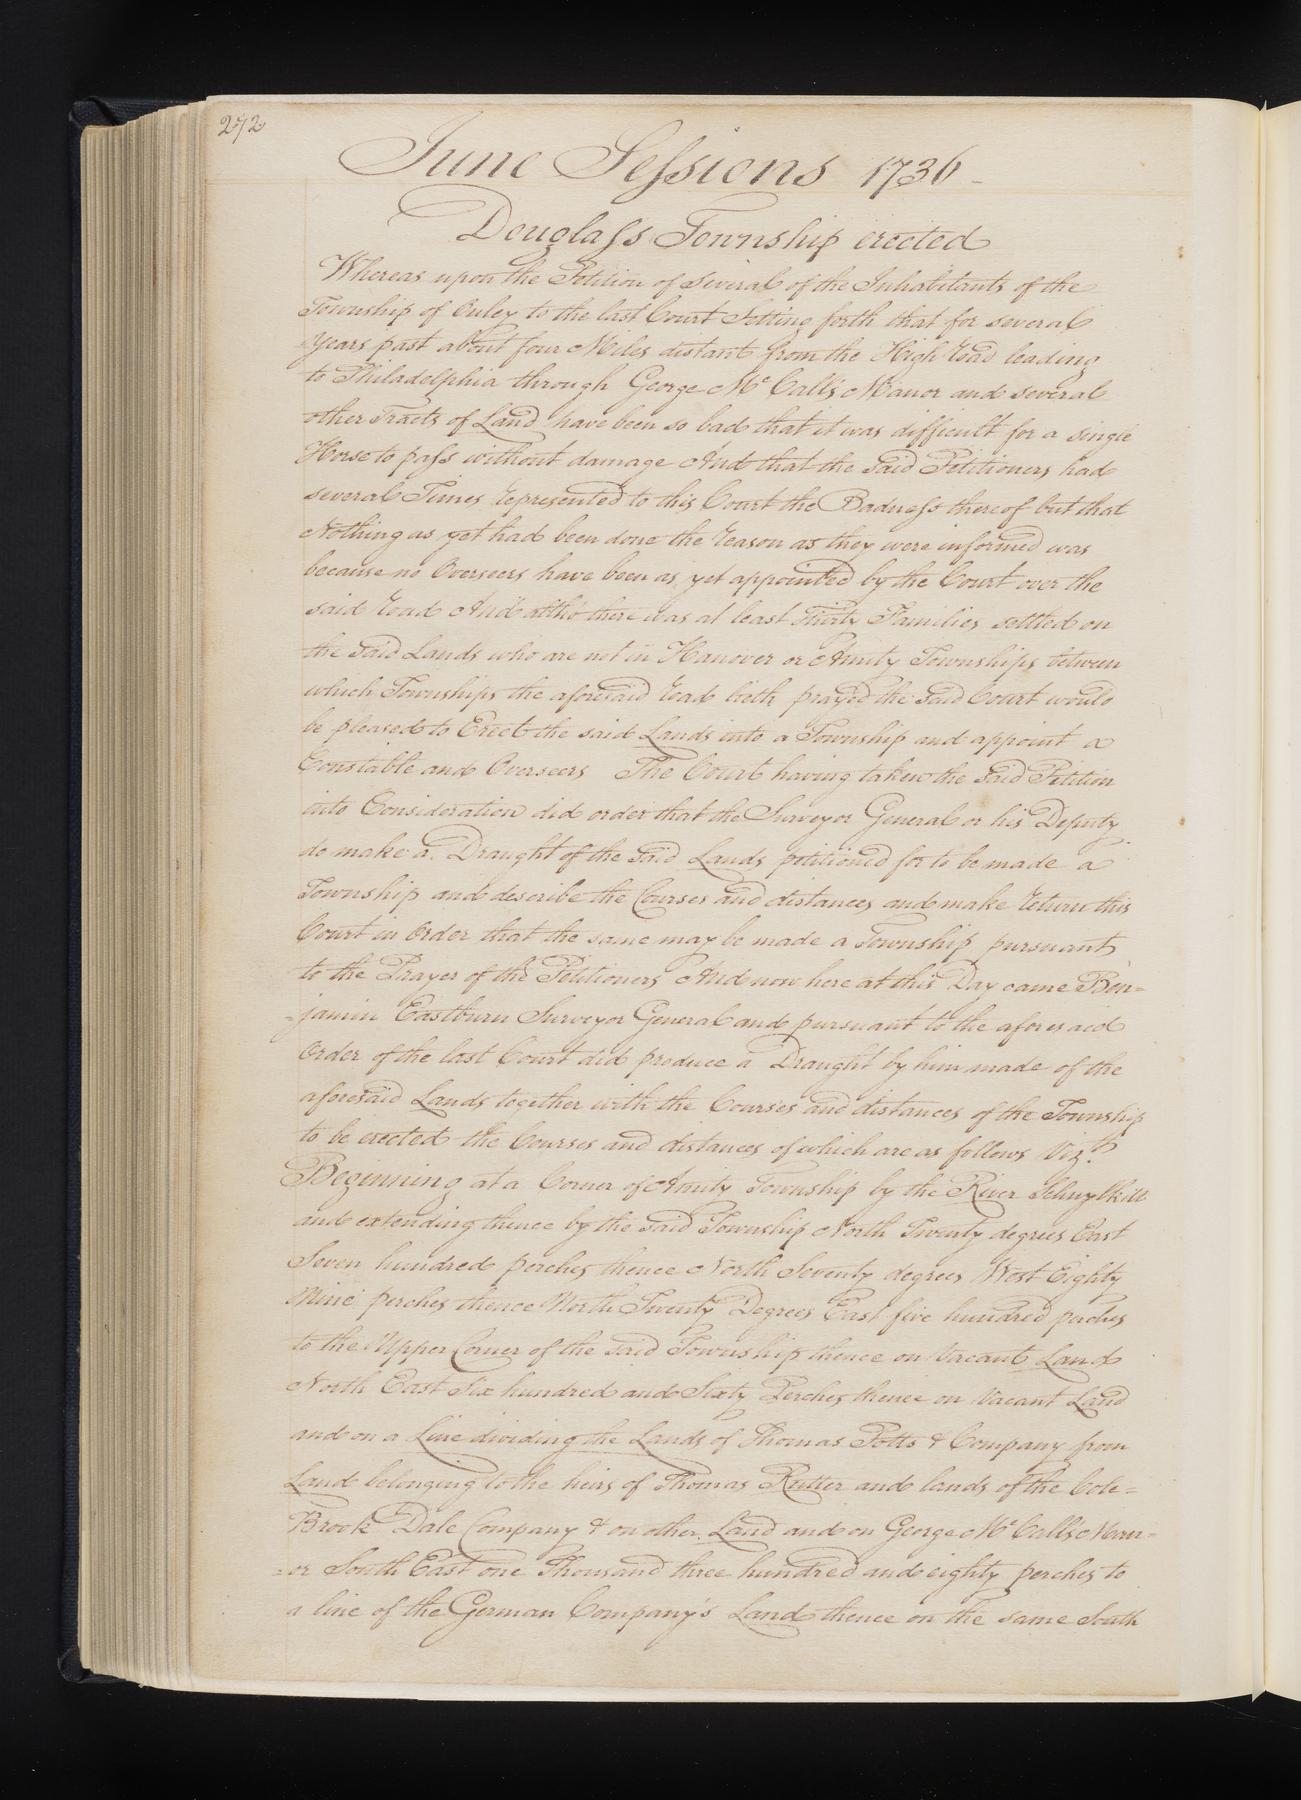 272
June Sessions 1736
Douglass Township erected
Whereas upon the Petition of Several of the Inhabitants of the
Township of Ouley to the last Court Setting forth that for several
years past about four Miles distant from the High road leading
to Philadelphia through George Mc Calls Manor and several
other Tracts of Land have been so bad that it was difficult for a single
Horse to pass without damage And that the said Petitioners had
several Times represented to this Court the Badness thereof but that
Nothing as yet had been done the reason as they were informed was
because no Overseers have been as yet appointed by the Court over the
said road And altho there was at least Thirty Families settled on
the said Lands who are not in Hanover or Amity Townships between
which Townships the aforesaid road lieth prayed the said Court would
be pleased to Erect the said Lands into a Township and appoint a
Constable and Overseers The Court having taken the said Petition
into Consideration did order that the Surveyor General or his Deputy
do make a Draught of the said Lands petitioned for to be made a
Township and describe the Courses and distances and make return this
Court in Order that the same may be made a Township pursuant
to the Prayer of the Petitioners And now here at this Day came Ben=
=jamin Eastburn Surveyor General and pursuant to the aforesaid
Order of the last Court did produce a Draught by him made of the
aforesaid Lands together with the Courses and distances of the Township
to be erected the Courses and distances of which are as follows Viz.t
Beginning at a Corner of Amity Township by the River Schuylkill
and extending thence by the said Township North Twenty degrees East
Seven hundred perches thence North Seventy degrees West Eighty
Nine perches thence North Twenty Degrees East five hundred perches
to the Upper Corner of the said Township thence on Vacant Land
North East Six hundred and Sixty Perches thence on Vacant Land
and on a Line dividing the Lands of Thomas Potts & Company from
Land belonging to the heirs of Thomas Rutter and lands of the Cole=
Brook Dale Company & on other Land and on George Mc Calls Mann=
=or South East one Thousand three hundred and eighty perches to
a line of the German Company's Land thence on the same South